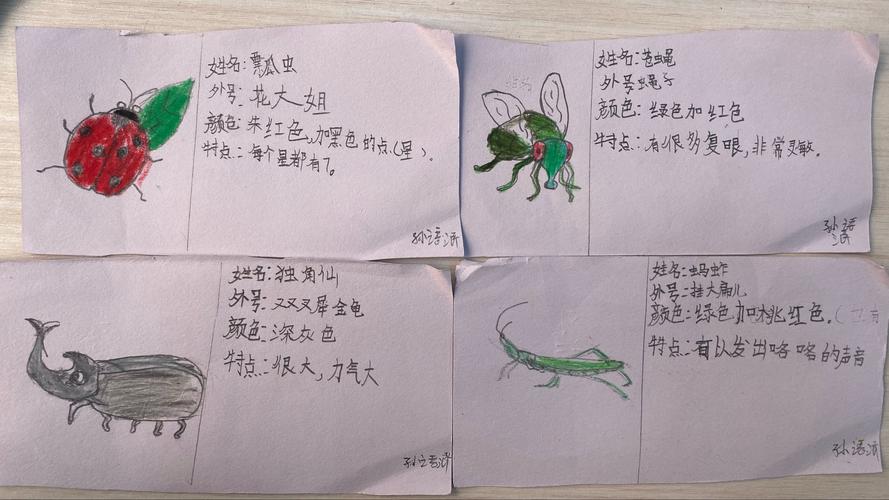 姓名:瓢瓜虫
外号:花大姐
颜色:朱红色,加黑色的点(星).
特点:每个星都有了。
孙语
姓名:苍蝇
外号蝇子
颜色:绿色加红色
特点:有很多复眼,非常灵敏。
孙语
姓名:独角仙
外号:双叉犀金龟
颜色:深灰色
特点:很大,力气大
孙语
姓名:蚂蚱
外号:挂大扁儿
颜色:绿色加桃红色.(
特点:有以发出咯咯的声音
孙语